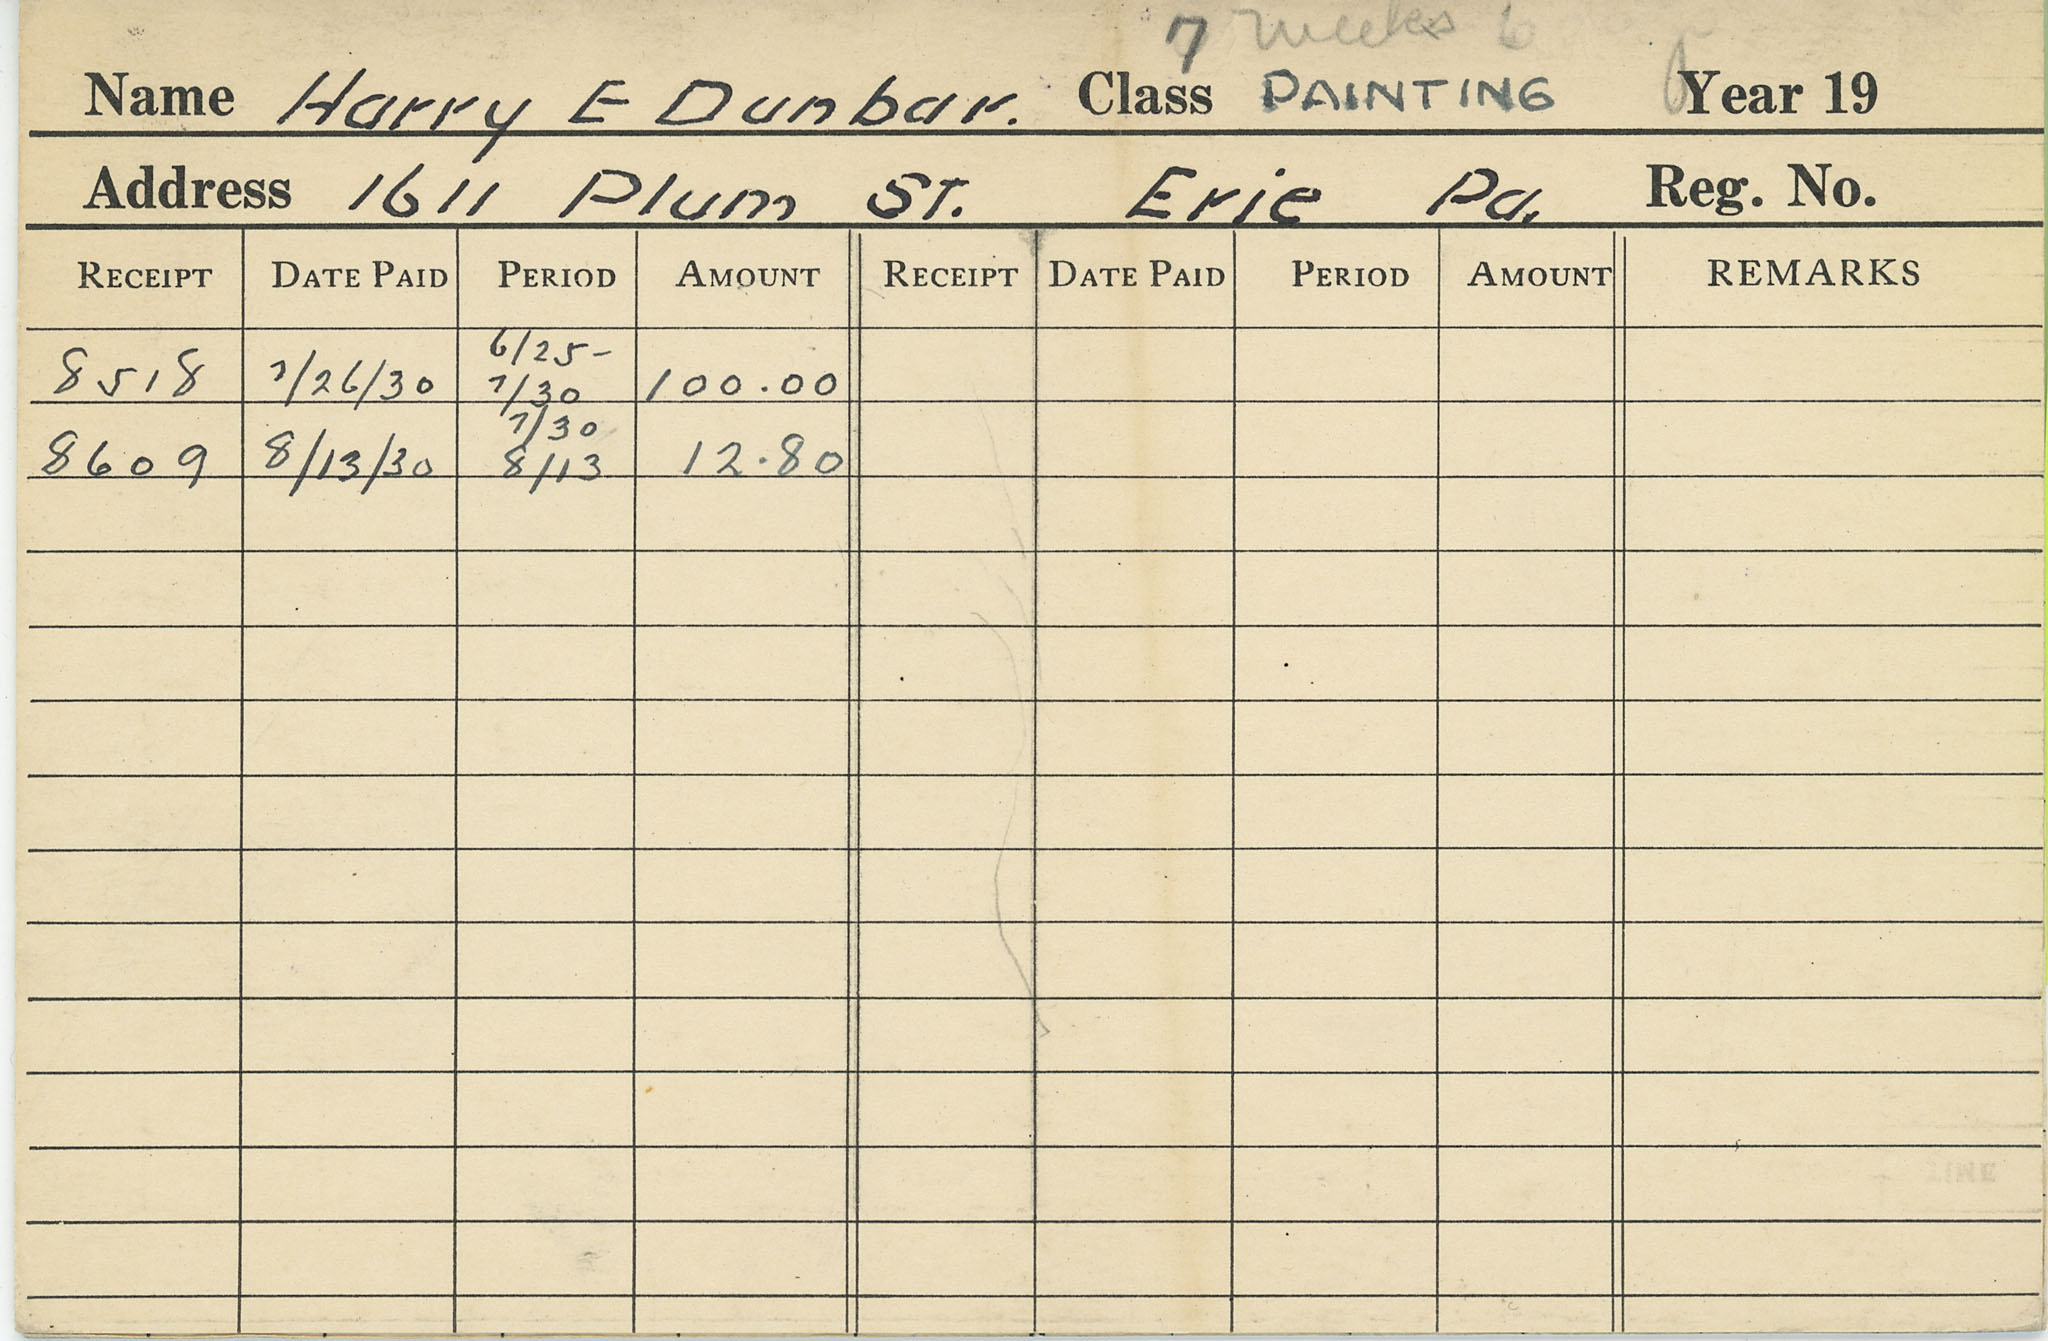 7 weeks 6
Name Harry E Dunbar. Class PAINTING Year 19
Address 1611 Plum St. Erie Pa. Reg. No.
RECEIPT DATE PAID PERIOD AMOUNT RECEIPT DATE PAID PERIOD AMOUNT REMARKS
8518 7/26/30 6/25- 7/30 100.00
8609 8/13/30 7/30 8/13 12.80